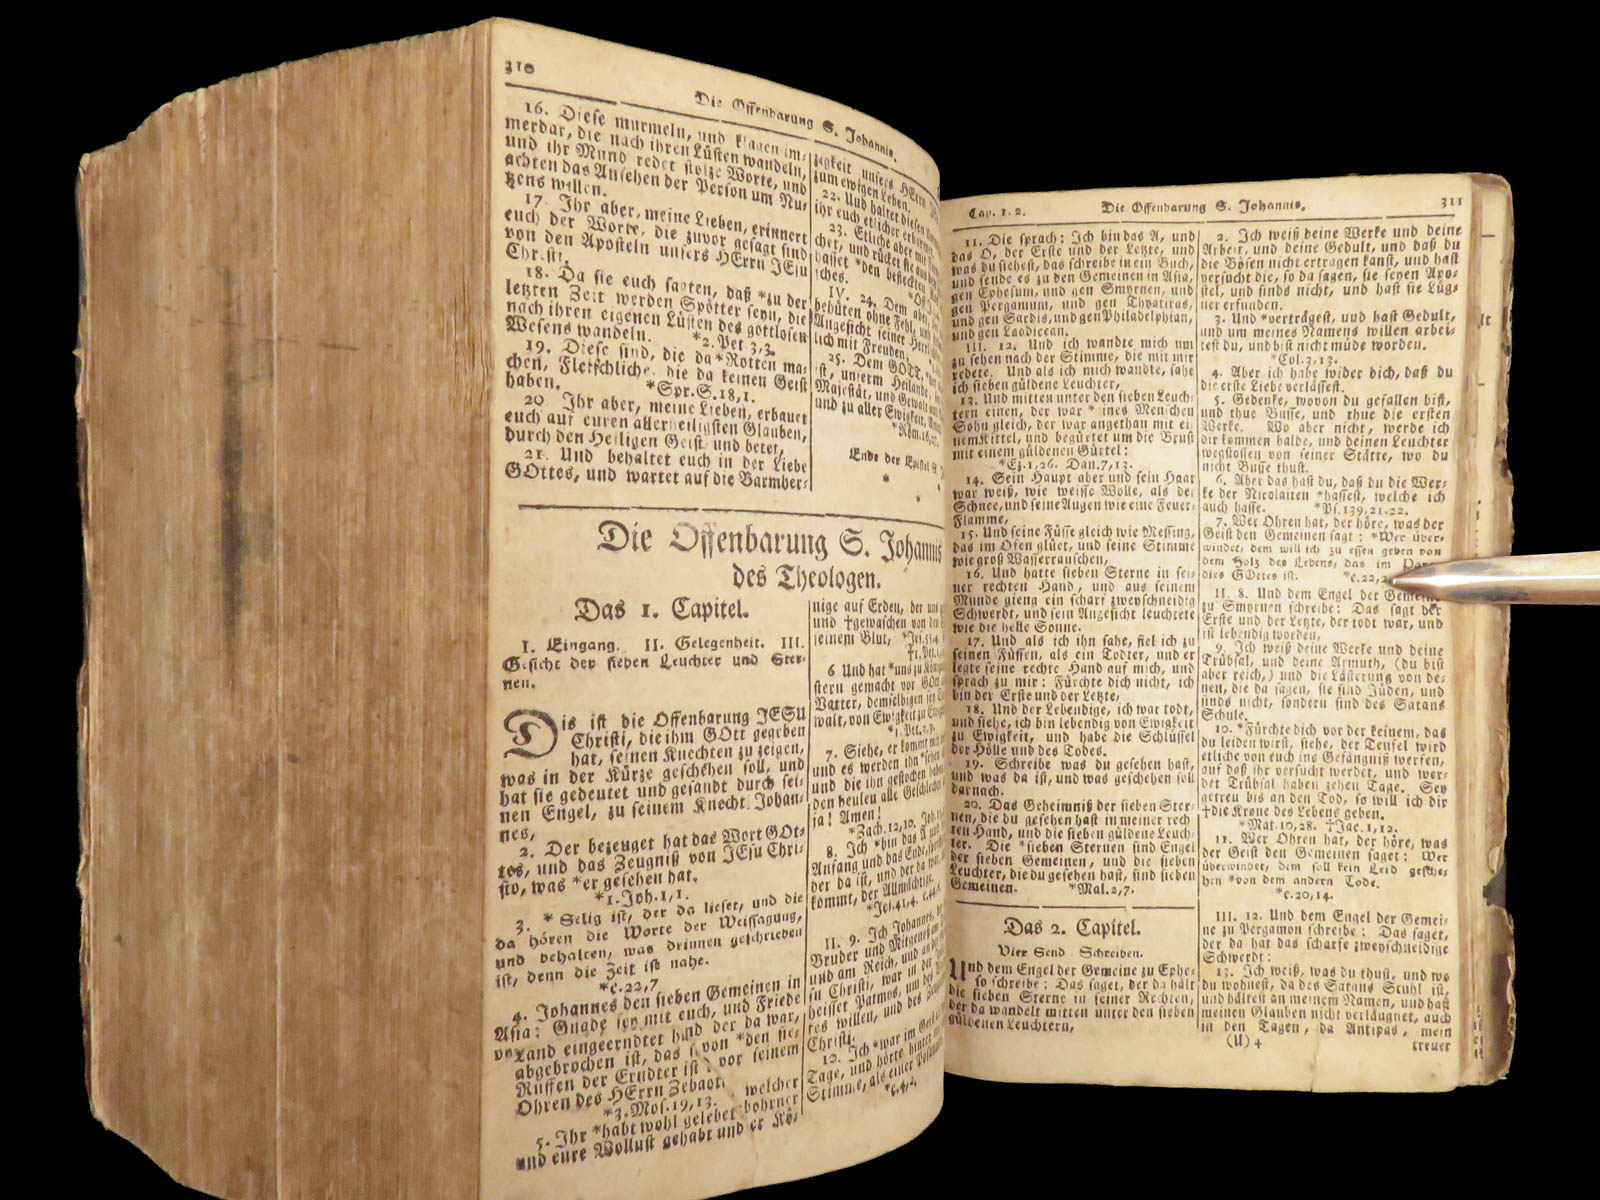 310
Die Offenbarung S. Johannis.
16. Diese murmeln, und klagen im-
merdar, die nach ihren Lüsten wandeln,
und ihr Mund redet stolze Worte, und
achten das Ansehen der Person um Nu-
tzens willen.
17. Ihr aber, meine Lieben, erinnert
euch der Worte, die zuvor gesagt sind
von den Aposteln unsers HErrn JEsu
Christi,
18. Da sie euch sagten, daß *zu der
letzten Zeit werden Spötter seyn, die
nach ihren eigenen Lüsten des gottlosen
Wesens wandeln. *2. Pet. 3,3.
19. Diese sind, die da *Rotten ma-
chen, Fleischliche, die da keinen Geist
haben. *Spr. S. 18,1.
20. Ihr aber, meine Lieben, erbauet
euch auf euren allerheiligsten Glauben,
durch den Heiligen Geist und betet,
21. Und behaltet euch in der Liebe
GOttes, und wartet auf die Barmher-
zigkeit unsers HErrn
zum ewigen Leben.
22. Und haltet diesen
ihr euch etlicher erbarmet
23. Etliche aber mit
chet, und rücket sie aus
hasset *den befleckten
sches.
IV. 24. Dem aber,
behüten ohne Fehl, und
Angesicht seiner
lich mit Freuden,
25. Dem GOTT,
ist, unserm Heilande,
Majestät, und Gewalt
und zu aller Ewigkeit,
*Röm. 16,27.
Ende der Epistel S.
* *
Die Offenbarung S. Johannis
des Theologen.
Das 1. Capitel.
I. Eingang. II. Gelegenheit. III.
Gesicht der sieben Leuchter und Ster-
nen.
Dis ist die Offenbarung JESU
Christi, die ihm GOtt gegeben
hat, seinen Knechten zu zeigen,
was in der Kürze geschehen soll, und
hat sie gedeutet und gesandt durch sei-
nen Engel, zu seinem Knecht Johan-
nes,
2. Der bezeuget hat das Wort GOt-
tes, und das Zeugniß von JEsu Chri-
sto, was *er gesehen hat.
*1. Joh. 1,1.
3. * Selig ist, der da lieset, und die
da hören die Worte der Weissagung,
und behalten, was drinnen geschrieben
ist, denn die Zeit ist nahe.
*c. 22,7
4. Johannes den sieben Gemeinen in
Asia: Gnade sey mit euch, und Friede
von
Land eingeerndtet hand der da war,
abgebrochen ist, das von *den sie-
Ruffen der Erndter ist vor seinem
Ohren des HErrn Zebaoth
*3. Mos. 19,13. welcher
5. Ihr *habt wohl gelebet bohrner
und eure Wollust gehabt und er Kö-
nige auf Erden, der uns
und †gewaschen von den
seinem Blut,
†1. Pet.
6 Und hat *uns zu Königen
stern gemacht vor GOtt
Vatter, demselbigen sey
walt, von Ewigkeit zu Ewigkeit
*1. Pet. 2,9.
7. Siehe, er kommt mit
und es werden ihn *sehen
und die ihn gestochen haben
den heulen alle Geschlechter
ja! Amen!
*Zach. 12,10. Joh.
8. Ich *bin das A und
Anfang und das Ende, spricht
der da ist, und der da war,
kommt, der Allmächtige.
*Jes. 41,4. c. 44,
II. 9. Ich Johannes,
Bruder und Mitgenoß an
und am Reich, und an der
su Christi, war in der
heisset Patmos, um des
tes willen, und des
Christi.
10. Ich *war im Geist
Tage, und hörte hinter
Stimme, als einer Posaunen,
*c. 4,2.
Cap. 1. 2.
Die Offenbarung S. Johannis.
311
11. Die sprach: Ich bin das A, und
das O, der Erste und der Letzte, und
was du siehest, das schreibe in ein Buch,
und sende es zu den Gemeinen in Asia,
gen Ephesum, und gen Smyrnen, und
gen Pergamum, und gen Thyatiras,
und gen Sardis, und gen Philadelphian,
und gen Laodicean.
III. 12. Und ich wandte mich um
zu sehen nach der Stimme, die mit mir
redete. Und als ich mich wandte, sahe
ich sieben güldene Leuchter,
13. Und mitten unter den sieben Leuch-
tern einen, der war * ines Menschen
Sohn gleich, der war angethan mit ei-
nem Kittel, und begürtet um die Brust
mit einem güldenen Gürtel:
*Ez. 1,26. Dan. 7,13.
14. Sein Haupt aber und sein Haar
war weiß, wie weisse Wolle, als der
Schnee, und seine Augen wie eine Feuer-
Flamme,
15. Und seine Füsse gleich wie Messing,
das im Ofen glüet, und seine Stimme
wie groß Wasserrauschen,
16. Und hatte sieben Sterne in sei-
ner rechten Hand, und aus seinem
Munde gieng ein scharf zweyschneidig
Schwerdt, und sein Angesicht leuchtete
wie die helle Sonne.
17. Und als ich ihn sahe, fiel ich zu
seinen Füssen, als ein Todter, und er
legte seine rechte Hand auf mich, und
sprach zu mir: Fürchte dich nicht, ich
bin der Erste und der Letzte,
18. Und der Lebendige, ich war todt,
und siehe, ich bin lebendig von Ewigkeit
zu Ewigkeit, und habe die Schlüssel
der Hölle und des Todes.
19. Schreibe was du gesehen hast,
und was da ist, und was geschehen soll
darnach.
20. Das Geheimniß der sieben Ster-
nen, die du gesehen hast in meiner rech
ten Hand, und die sieben güldene Leuch-
ter. Die *sieben Sternen sind Engel
der sieben Gemeinen, und die sieben
Leuchter, die du gesehen hast, sind sieben
Gemeinen. *Mal. 2,7.
Das 2. Capitel.
Vier Send Schreiben.
Und dem Engel der Gemeine zu Ephe-
so schreibe: Das saget, der da hält
die sieben Sterne in seiner Rechten,
der da wandelt mitten unter den sieben
güldenen Leuchtern,
2. Ich weiß deine Werke und deine
Arbeit, und deine Gedult, und daß du
die Bösen nicht ertragen kanst, und hast
versucht die, so da sagen, sie seyen Apo-
stel, und sinds nicht, und hast sie Lüg-
ner erfunden.
3. Und *verträgest, und hast Gedult,
und um meines Namens willen arbei-
test du, und bist nicht müde worden.
*Col. 3,13.
4. Aber ich habe wider dich, daß du
die erste Liebe verlässest.
5. Gedenke, wovon du gefallen bist,
und thue Busse, und thue die ersten
Werke. Wo aber nicht, werde ich
dir kommen balde, und deinen Leuchter
wegstossen von seiner Stätte, wo du
nicht Busse thust.
6. Aber das hast du, daß du die Wer-
ke der Nicolaiten *hassest, welche ich
auch hasse. *Ps. 139,21.22.
7. Wer Ohren hat, der höre, was der
Geist den Gemeinen sagt: *Wer über-
windet, dem will ich zu essen geben von
dem Holz des Lebens, das im
dies GOttes ist. *c. 22,2
II. 8. Und dem Engel der Gemeine
zu Smyrnen schreibe: Das sagt der
Erste und der Letzte, der todt war, und
ist lebendig worden,
9. Ich weiß deine Werke und deine
Trübsal, und deine Armuth, (du bist
aber reich,) und die Lästerung von de-
nen, die da sagen, sie sind Jüden, und
sinds nicht, sondern sind des Satans
Schule.
10. *Fürchte dich vor der keinem, das
du leiden wirst, siehe, der Teufel wird
etliche von euch ins Gefängniß werfen,
auf daß ihr versucht werdet, und wer-
det Trübsal haben zehen Tage. Sey
getreu bis an den Tod, so will ich dir
†die Krone des Lebens geben.
*Mat. 10,28. †Jac. 1,12.
11. Wer Ohren hat, der höre, was
der Geist den Gemeinen saget: Wer
überwindet, dem soll kein Leid gesche-
hen *von dem andern Tode.
*c. 20,14.
III. 12. Und dem Engel der Gemei-
ne zu Pergamon schreibe: Das saget,
der da hat das scharfe zweyschneidige
Schwerdt:
13. Ich weiß, was du thust, und wo
du wohnest, da des Satans Stuhl ist,
und hältest an meinem Namen, und hast
meinen Glauben nicht verläugnet, auch
in den Tagen, da Antipas, mein
(U) 4
treuer